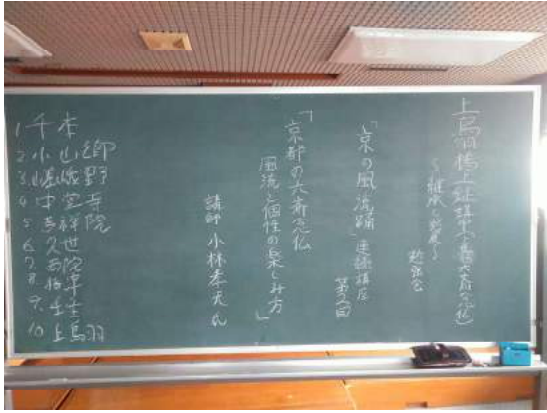 上鳥羽橋上鉦講
六斎念仏)
〜継承と発展〜
勉強会
「京の風流踊」連続講座
第2回
「京都の六斎念仏
風流と個性の楽しみ方」
講師 小林孝夫氏
1 千本
2 小山郷
3 嵯峨野
4 中堂寺
5 吉祥院
6 久世
7. 西院
8.
9. 壬生
10 上鳥羽